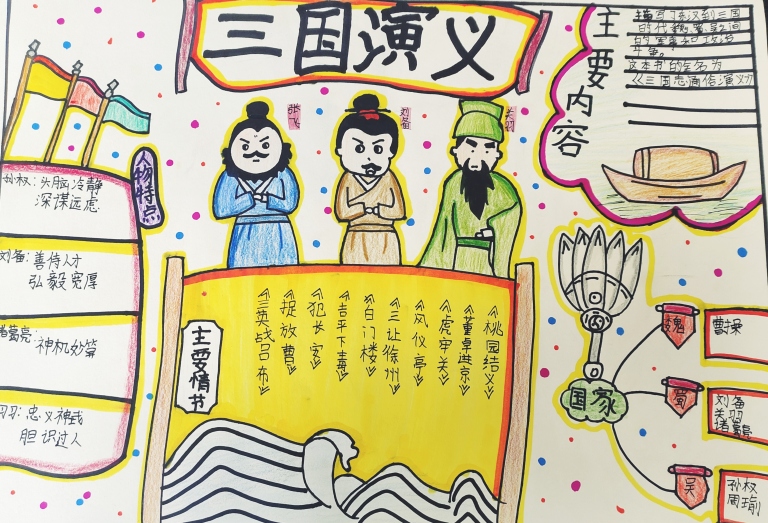 三国演义
主要内容
描写了东汉到三国
的时代魏蜀吴之间
的军事和政治
斗争。
这本书的全名为
《三国志通俗演义》
张飞
刘备
关羽
人物特点
孙权:头脑冷静
深谋远虑
刘备:善待人才
弘毅宽厚
诸葛亮:神机妙算
关羽:忠义神武
胆识过人
主要情书
《桃园结义》
《董卓进京》
《虎牢关》
《凤仪亭》
《三让徐州》
《白门楼》
《吉平下毒》
《犯长安》
《捉放曹》
《三英战吕布》
国家
魏
曹操
蜀
刘备
关羽
诸葛亮
吴
孙权
周瑜